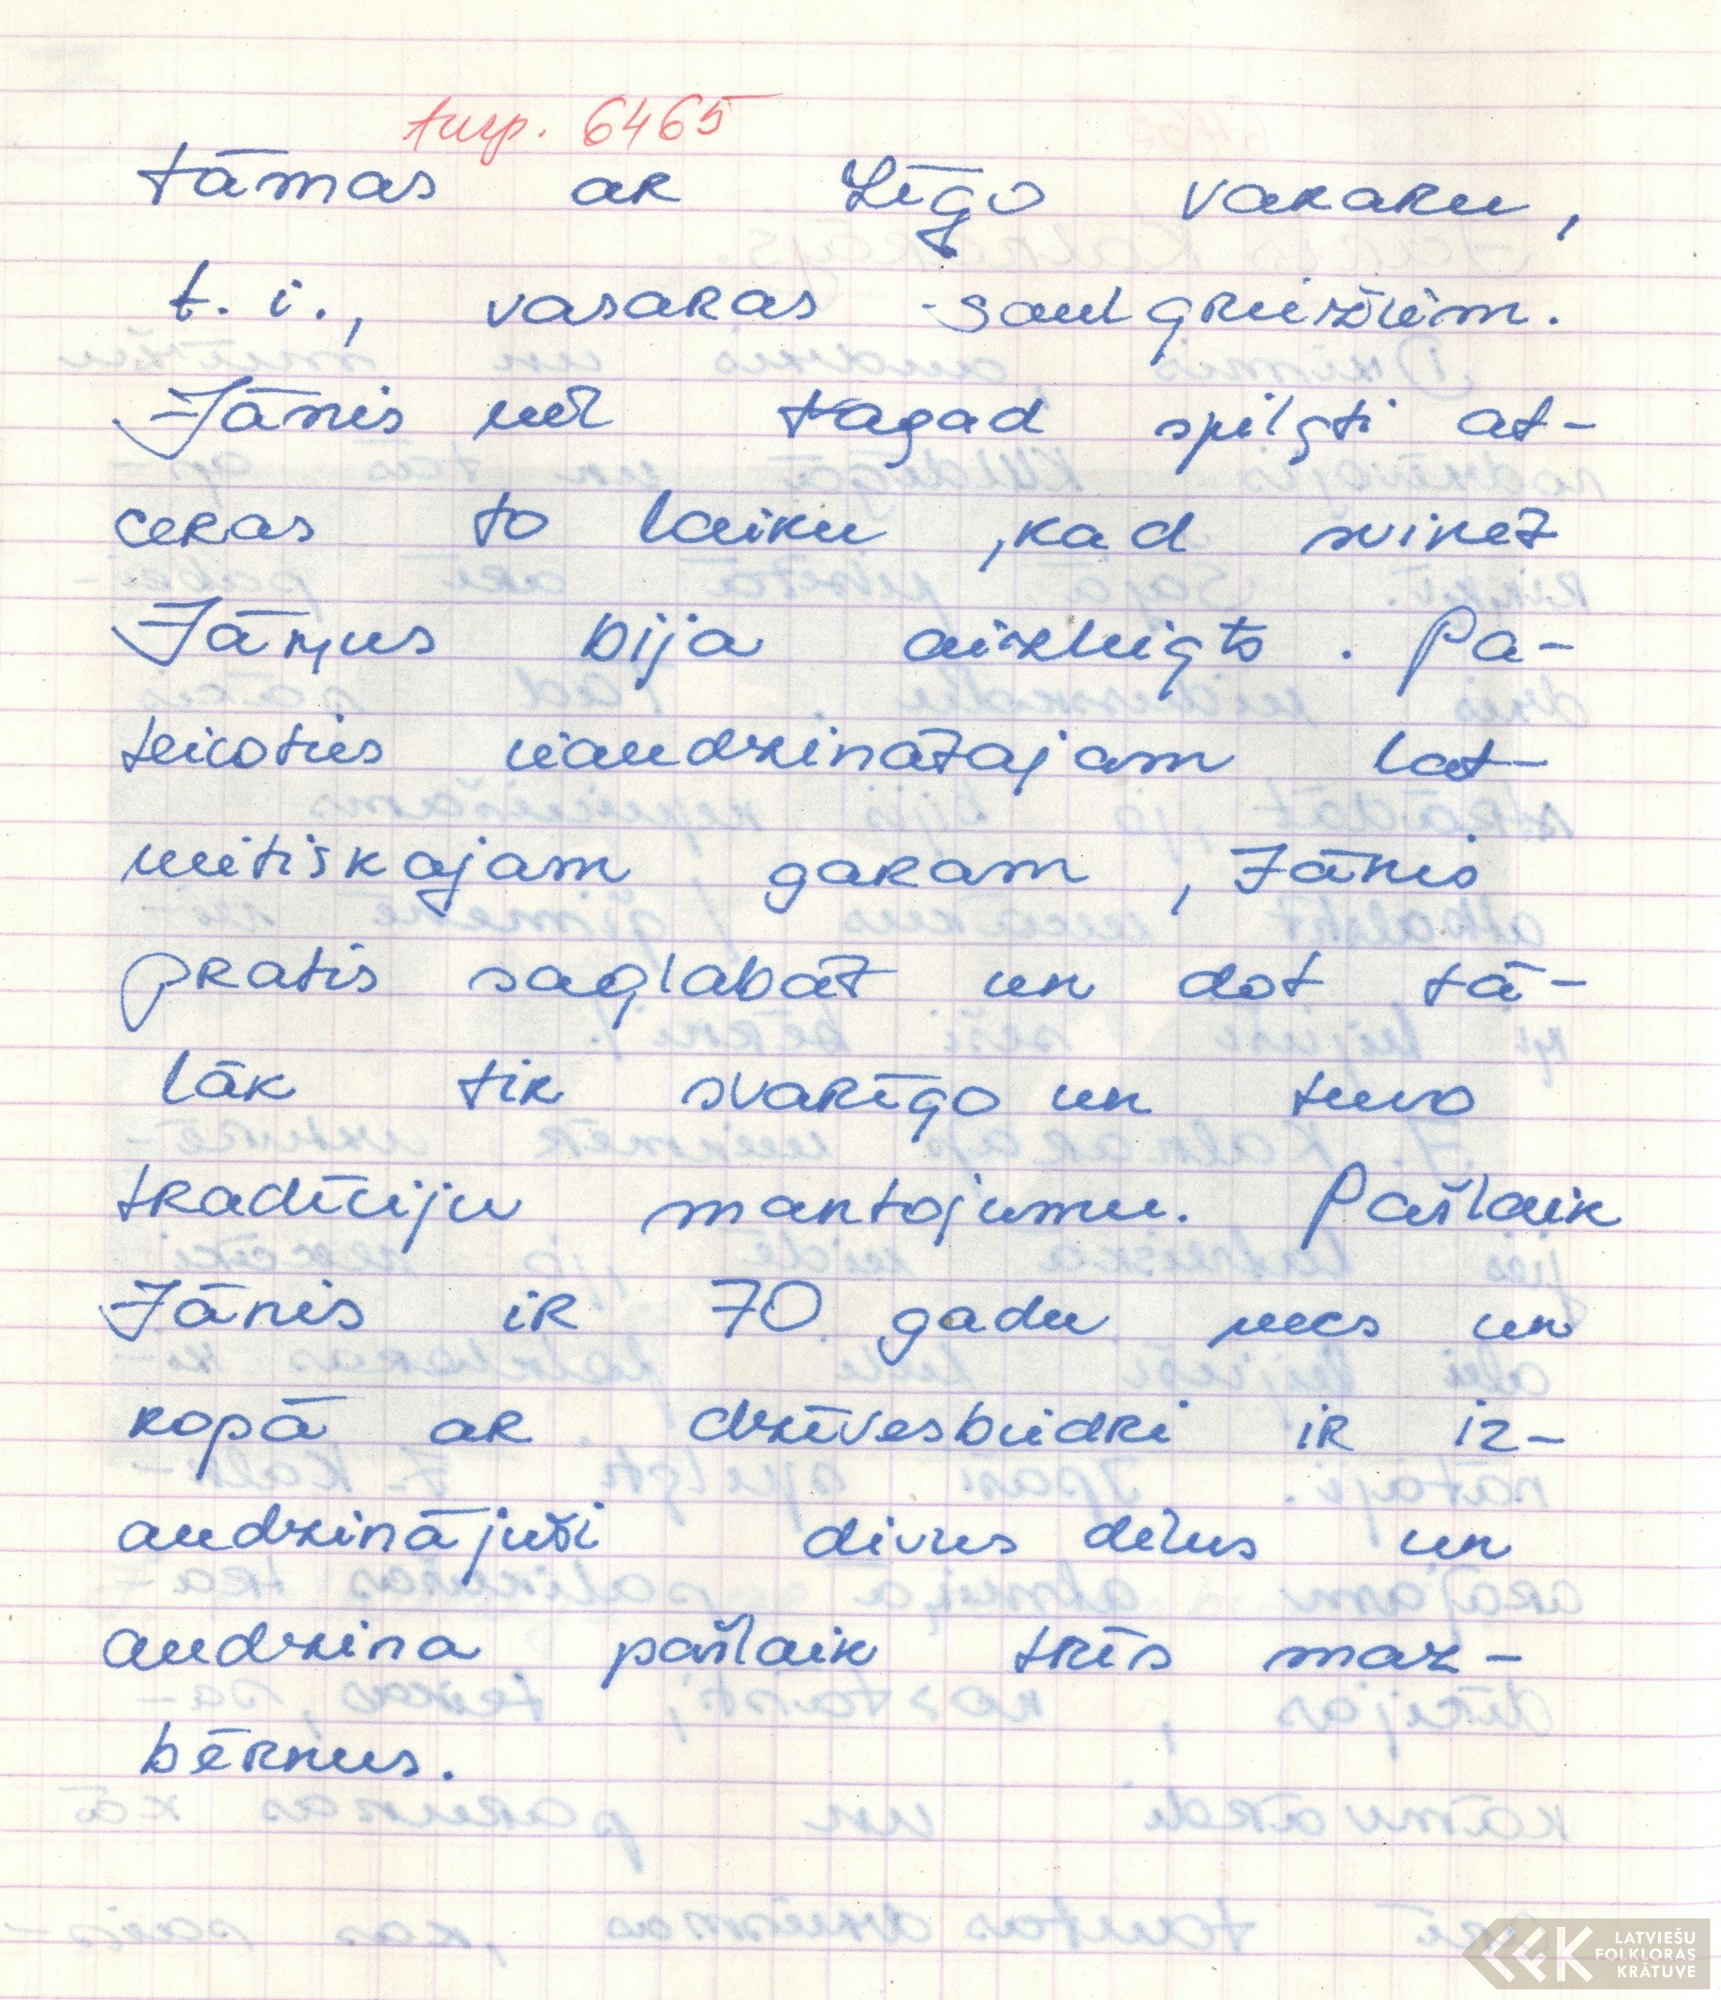 turp. 6465
tāmas ar Līgo vakaru,
t. i., vasaras saulgriežiem.
Jānis vēl tagad spilgti at-
ceras to laiku, kad svinēt
Jāņus bija aizliegts. Pa-
teicoties viaudzinātajam lat-
vietiskajam garam, Jānis
pratis saglabāt un dot tā-
lāk tik svarīgo un tuvo
tradīciju mantojumu. Pašlaik
Jānis ir 70 gadu vecs un
kopā ar dzīvesbiedri ir iz-
audzinājuši divus dēlus un
audzina pašlaik trīs maz-
bērnus.
LATVIEŠU
FOLKLORAS
KRĀTUVE